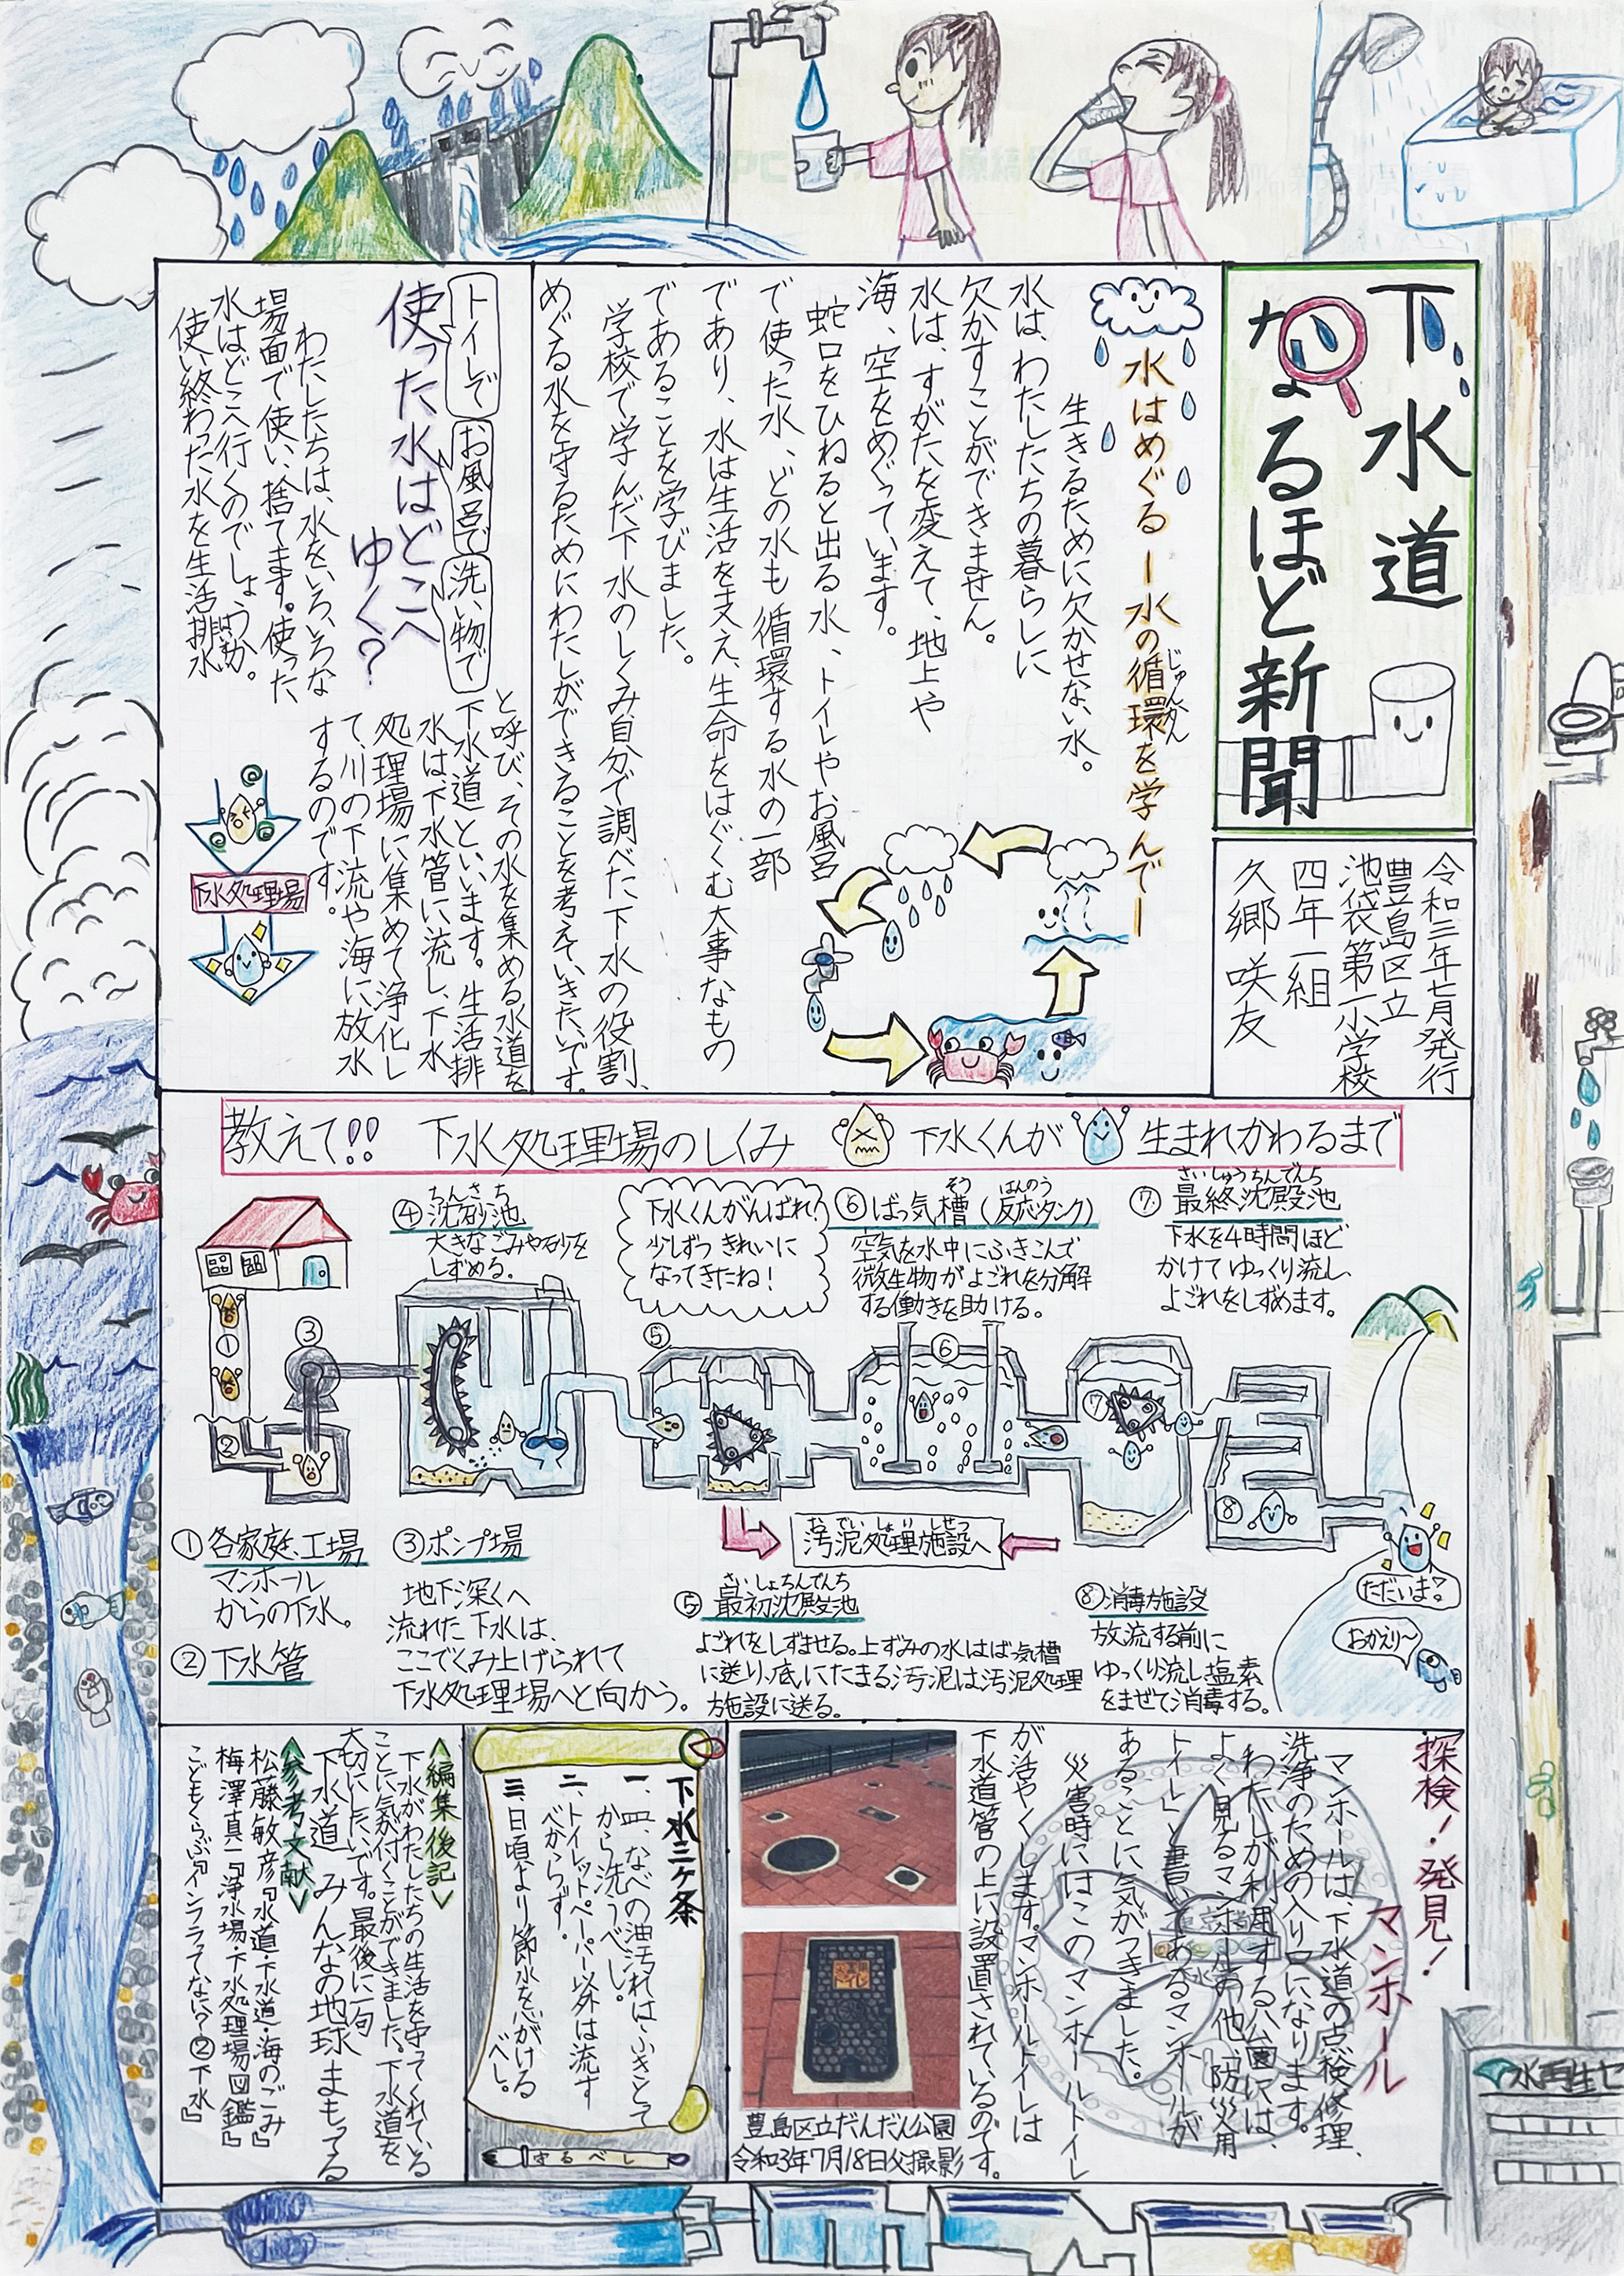 下水道
なるほど新聞
令和三年七月発行
豊島区立
池袋第一小学校
四年一組
久郷 咲友
水はめぐる ー水の循環を学んでー
じゅんかん
生きるために欠かせない水。
水は、わたしたちの暮らしに
欠かすことができません。
水は、すがたを変えて、地上や
海、空をめぐっています。
蛇口をひねると出る水、トイレやお風呂
で使った水、どの水も循環する水の一部
であり、水は生活を支え、生命をはぐくむ大事なもの
であることを学びました。
学校で学んだ下水のしくみ、自分で調べた下水の役割、
めぐる水を守るためにわたしができることを考えていきたいです。
トイレで
お風呂で
洗い物で
使った水はどこへ
ゆく?
わたしたちは、水をいろいろな
場面で使い、捨てます。使った
水はどこへ行くのでしょうか。
使い終わった水を生活排水
はい
と呼び、その水を集める水道を
下水道といいます。生活排
水は下水管に流し、下水
処理場に集めて浄化し
て、川の下流や海に放水
するのです。
下水処理場
教えて!! 下水処理場のしくみ 下水くんが 生まれかわるまで
④ 沈砂池
ちんさち
大きなごみや砂を
しずめる。
下水くんがんばれ!
少しずつ きれいに
なってきたね!
⑥ ばっ気槽(反応タンク)
そう はんのう
空気を水中にふきこんで
微生物がよごれを分解
する働きを助ける。
⑦ 最終沈殿池
さいしゅうちんでんち
下水を4時間ほど
かけて ゆっくり流し、
よごれをしずめます。
①
②
③
⑤
⑥
⑦
⑧
汚泥処理施設へ
おでいしょりしせつ
① 各家庭、工場
マンホール
からの下水。
② 下水管
③ ポンプ場
地下深くへ
流れた下水は、
ここでくみ上げられて
下水処理場へと向かう。
⑤ 最初沈殿池
さいしょちんでんち
よごれをしずませる。上ずみの水はばっ気槽
に送り、底にたまる汚泥は汚泥処理
施設に送る。
⑧ 消毒施設
放流する前に
ゆっくり流し塩素
をまぜて消毒する。
ただいま?
おかえり〜
探検!発見!
マンホール
マンホールは、下水道の点検、修理、
洗浄のための入り口になります。
わたしが利用する公園には、
よく見るマンホールの他、「防災用
トイレ」と書いてあるマンホールが
あることに気がつきました。
災害時にはこのマンホールトイレ
が活やくします。マンホールトイレは
下水道管の上に設置されているのです。
豊島区立だんだん公園
令和3年7月18日父撮影
下水三ヶ条
一、皿、なべの油汚れは、ふきとって
から洗うべし。
二、トイレットペーパー以外は流す
べからず。
三、日頃より節水を心がける
べし。
守るべし
編集後記
下水がわたしたちの生活を守ってくれている
ことに気が付くことができました。下水道を
大切にしたいです。最後に一句
下水道 みんなの地球 まもってる
参考文献
松藤敏彦『水道・下水道・海のごみ』
梅澤真一『浄水場・下水処理場図鑑』
こどもくらぶ『インフラってなに?②下水』
水再生セ